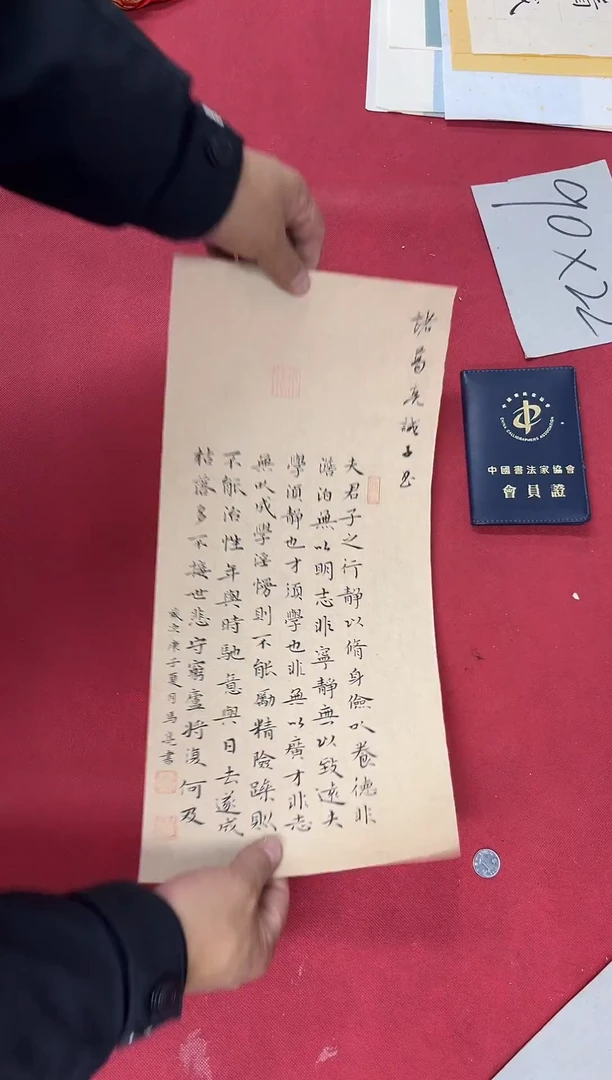 諸葛亮誡子書
夫君子之行靜以脩身儉以養德非
澹泊無以明志非寧靜無以致遠夫
學須靜也才須學也非無以廣才非志
無以成學淫慢則不能勵精險躁則
不能治性年與時馳意與日去遂成
枯落多不接世悲守窮廬將復何及
歲次庚子夏月馬亮書
90×22
中國書法家協會
CHINA CALLIGRAPHERS ASSOCIATION
中國書法家協會
會員證